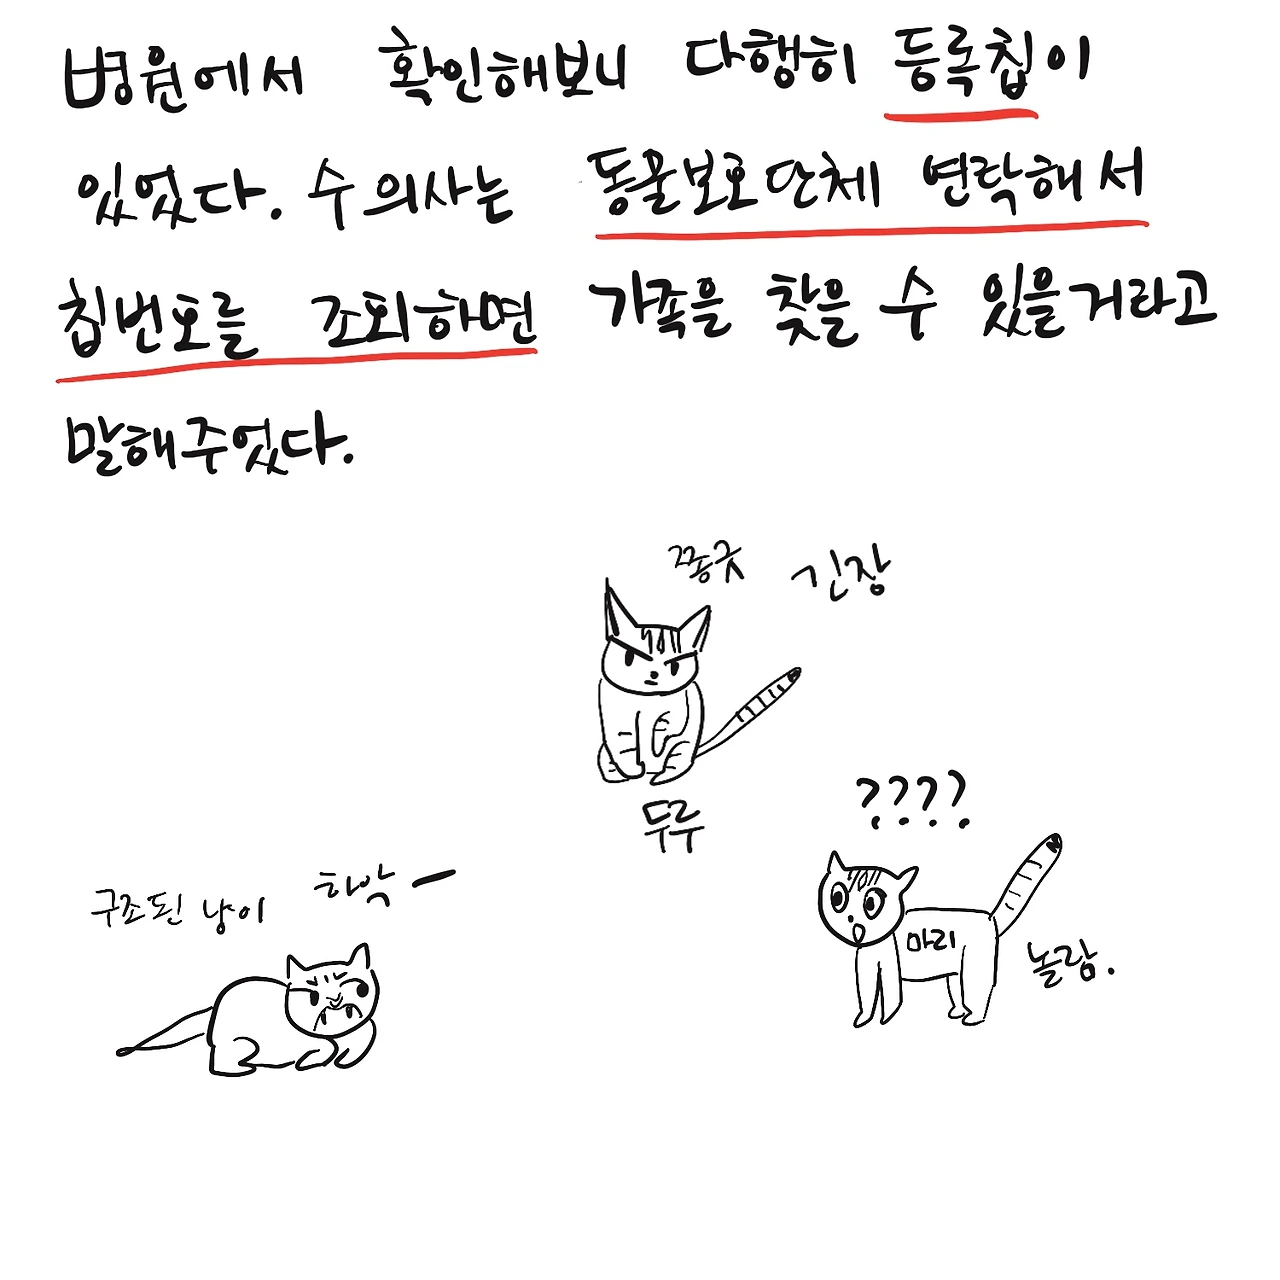 병원에서 확인해보니 다행히 등록칩이
있었다. 수의사는 동물보호단체 연락해서
칩번호를 조회하면 가족을 찾을 수 있을거라고
말해주었다.
쫑긋 긴장
두루
????
구조된 냥이 하악ー
마리
놀람.